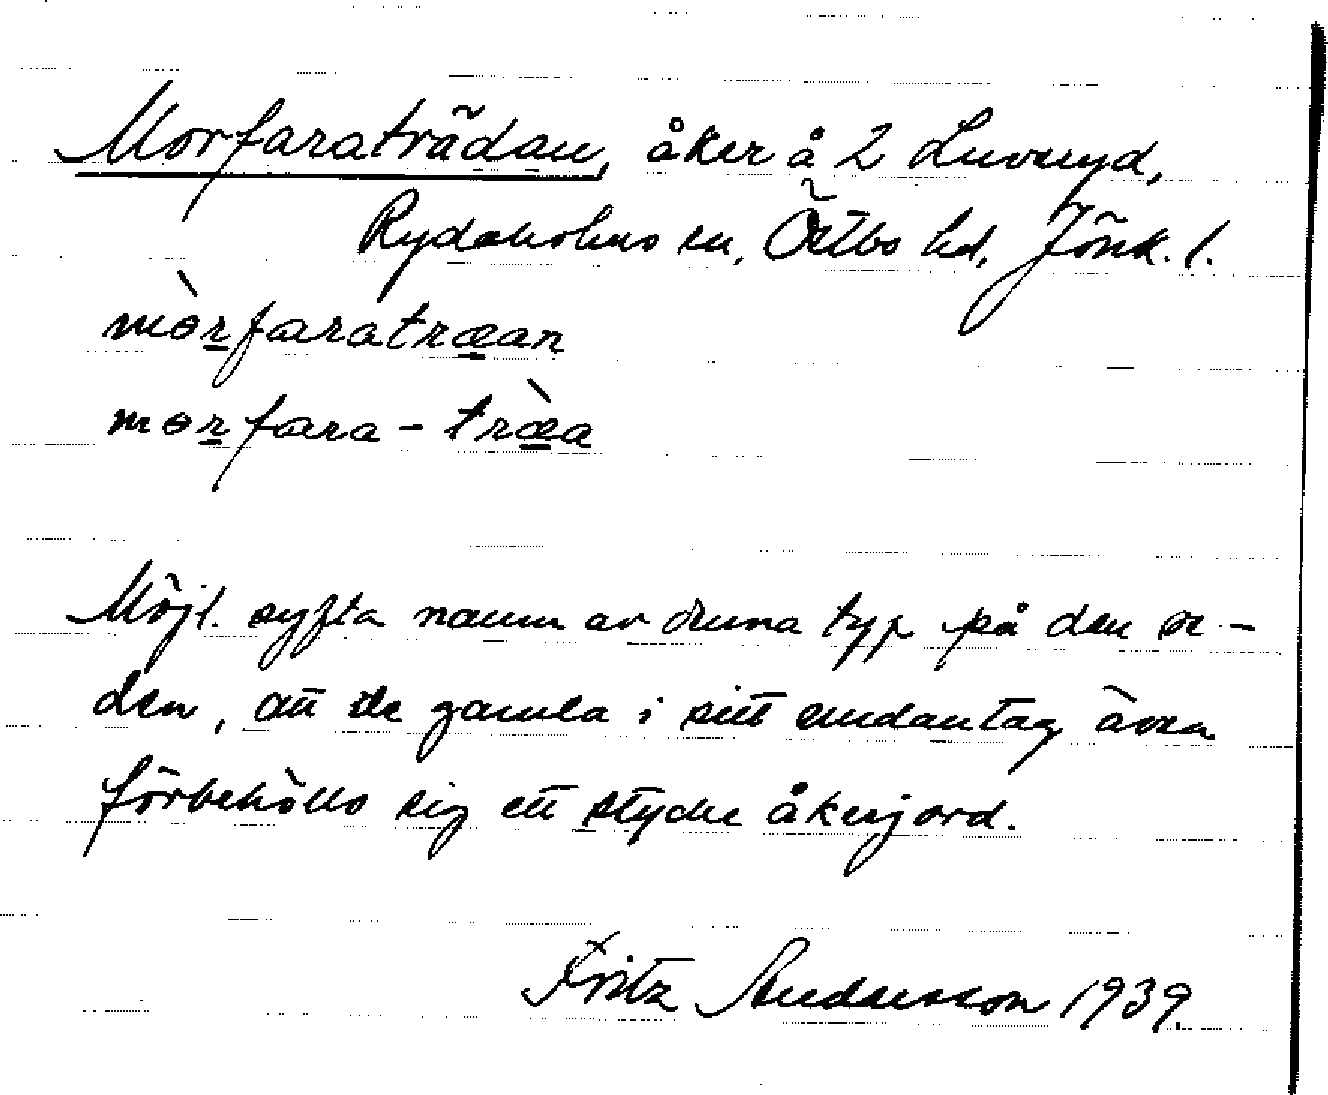 Morfaraträdan, åker å 2 Luvenyd,
Rydaholms sn, Östbo hd, Jönk. l.
mòrfaratræan
morfara - træ̀a
Möjl. syfta namn av denna typ på den se-
den, att de gamla i sitt undantag även
förbehöllo sig ett stycke åkerjord.
Fritz Andersson 1939